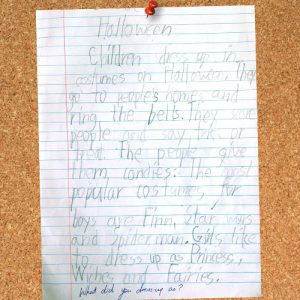 Halloween
Children dress up in
costumes on Halloween. They
go to people's homes and
ring the bells. They scare
people and say tric or
treat. The people give
them candies. The most
popular costumes for
boys are Finn, Star wars
and Spiderman. Girls like
to dress up as Princess,
Wiches and Fairies.
What did you dress up as?